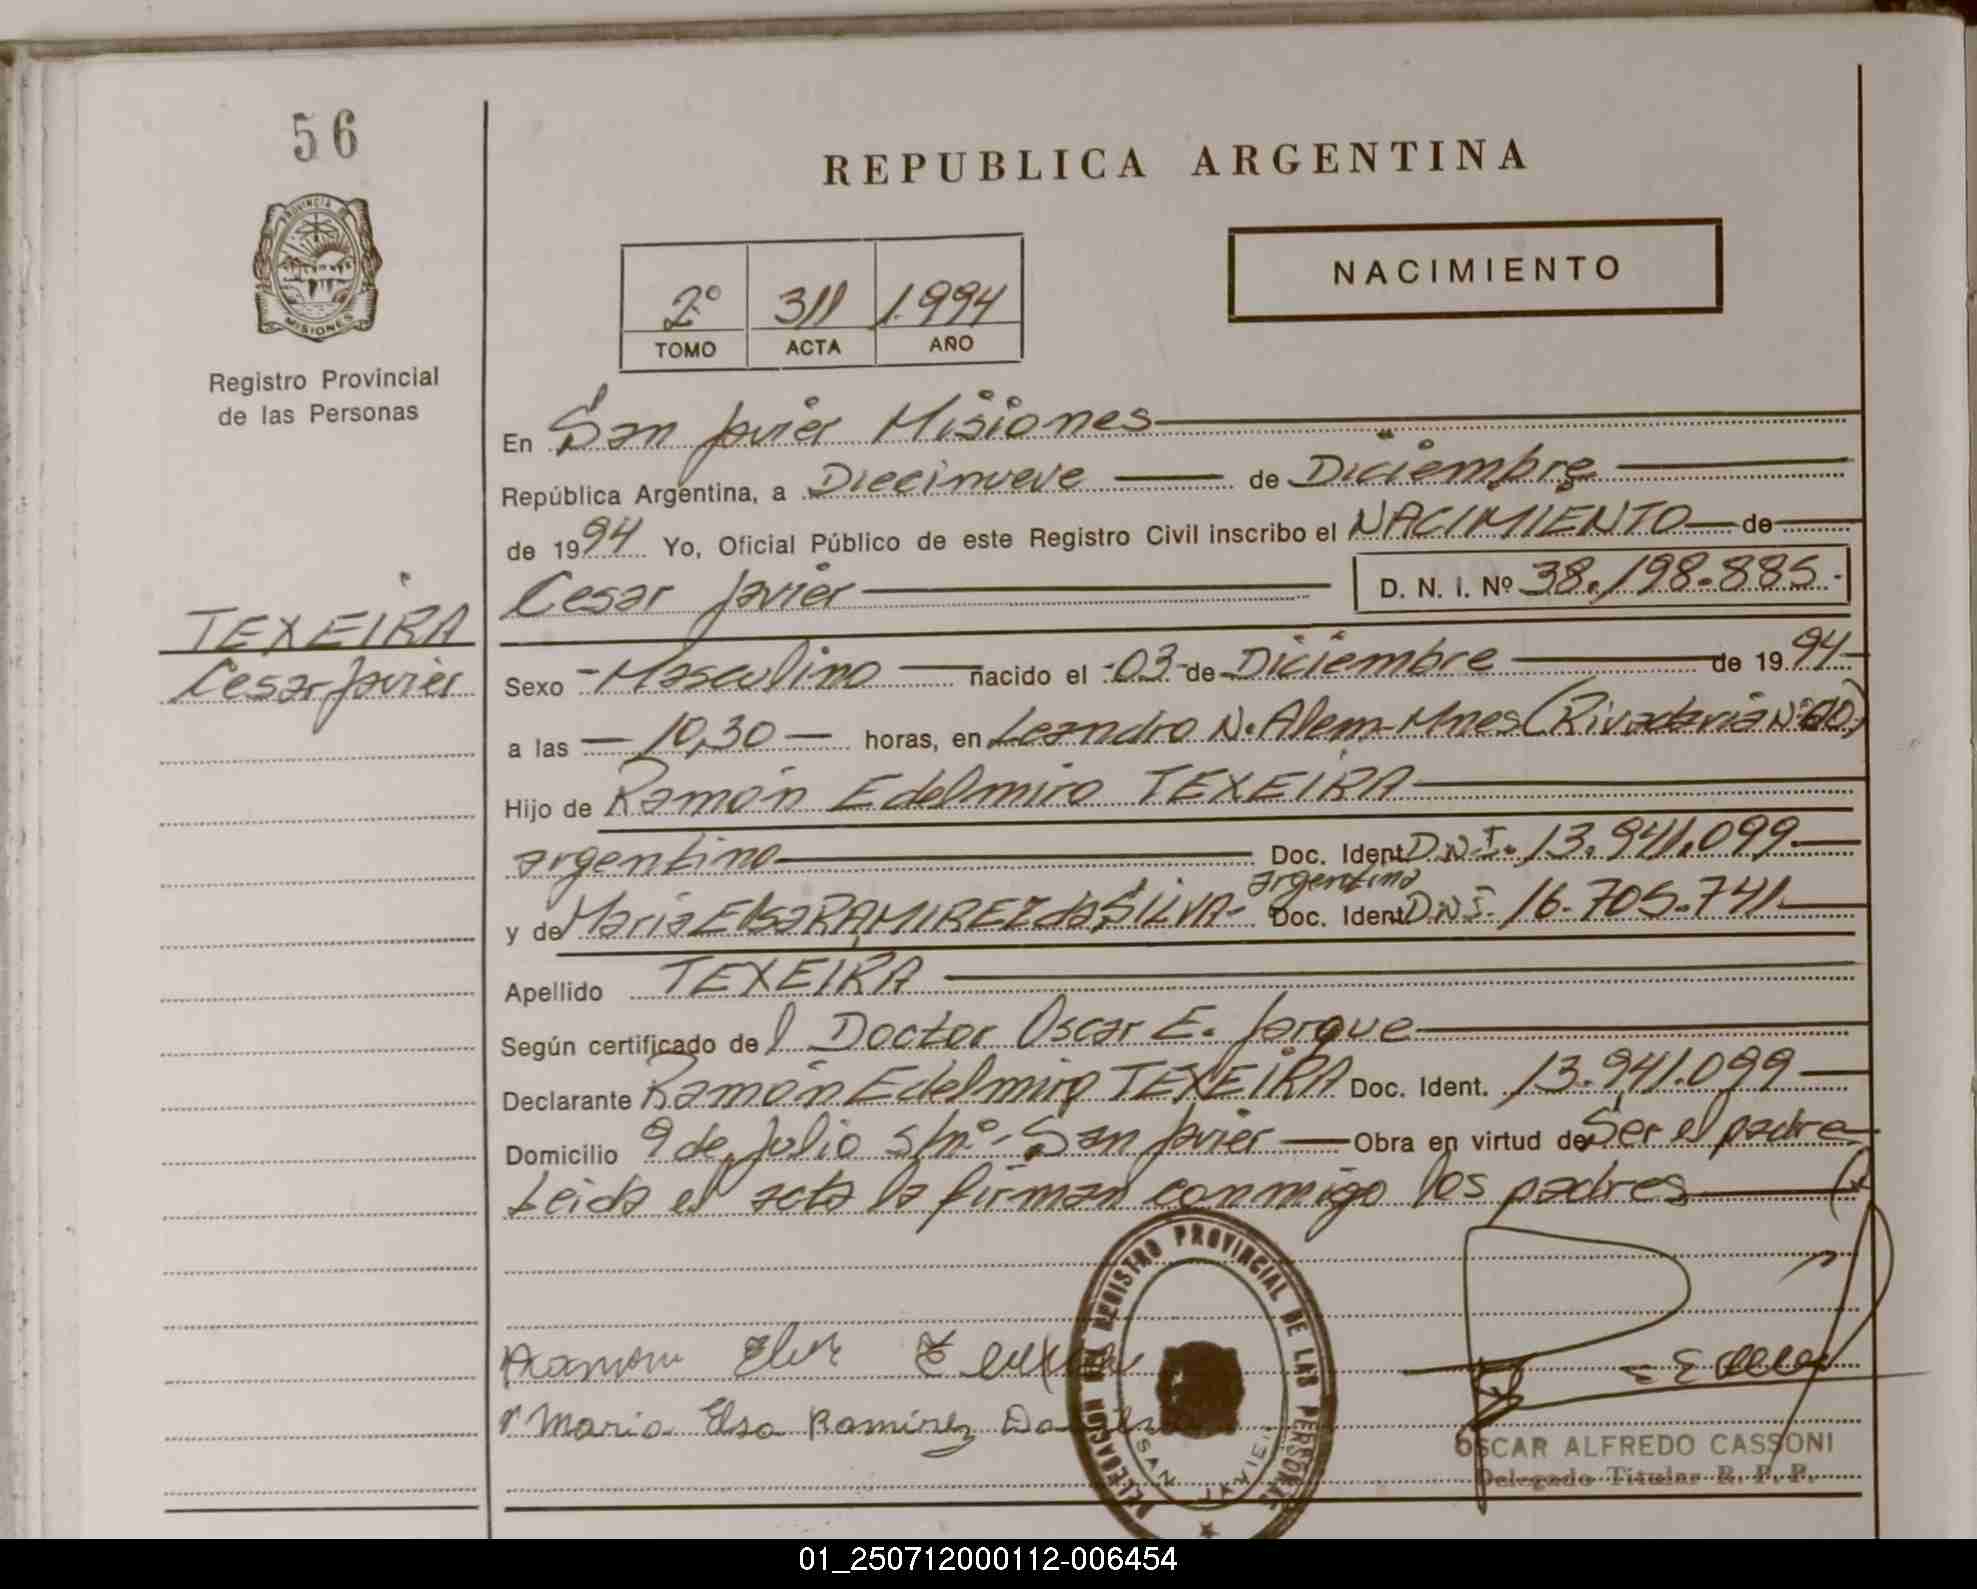 56
PROVINCIA DE
MISIONES
Registro Provincial
de las Personas
TEXEIRA
Cesar Javier
REPUBLICA ARGENTINA
2º 311 1.994
TOMO ACTA AÑO
NACIMIENTO
En San Javier Misiones
República Argentina, a Diecinueve de Diciembre
de 1994 Yo, Oficial Público de este Registro Civil inscribo el NACIMIENTO de
Cesar Javier D. N. I. Nº 38.198.885.-
Sexo - Masculino nacido el -03- de Diciembre de 1994
a las 10,30 horas, en Leandro N. Alem-Mnes (Rivadavia Nº
Hijo de Ramón Edelmiro TEXEIRA
argentino Doc. Ident. D.N.I. 13.941.099
argentina
y de Maria Elsa RAMIREZ da SILVA- Doc. Ident. D.N.I. 16.705.741
Apellido TEXEIRA
Según certificado del Doctor Oscar E. Jarque
Declarante Ramón Edelmiro TEXEIRA Doc. Ident. 13.941.099
Domicilio 9 de Julio s/nº- San Javier Obra en virtud de Ser el padre
Leida el acta la firman conmigo los padres
DELEGACION DEL REGISTRO PROVINCIAL DE LAS PERSONAS
SAN JAVIER
Ramon
Maria Elsa Ramirez Da
OSCAR ALFREDO CASSONI
Delegado Titular R. P. P.
01_250712000112-006454